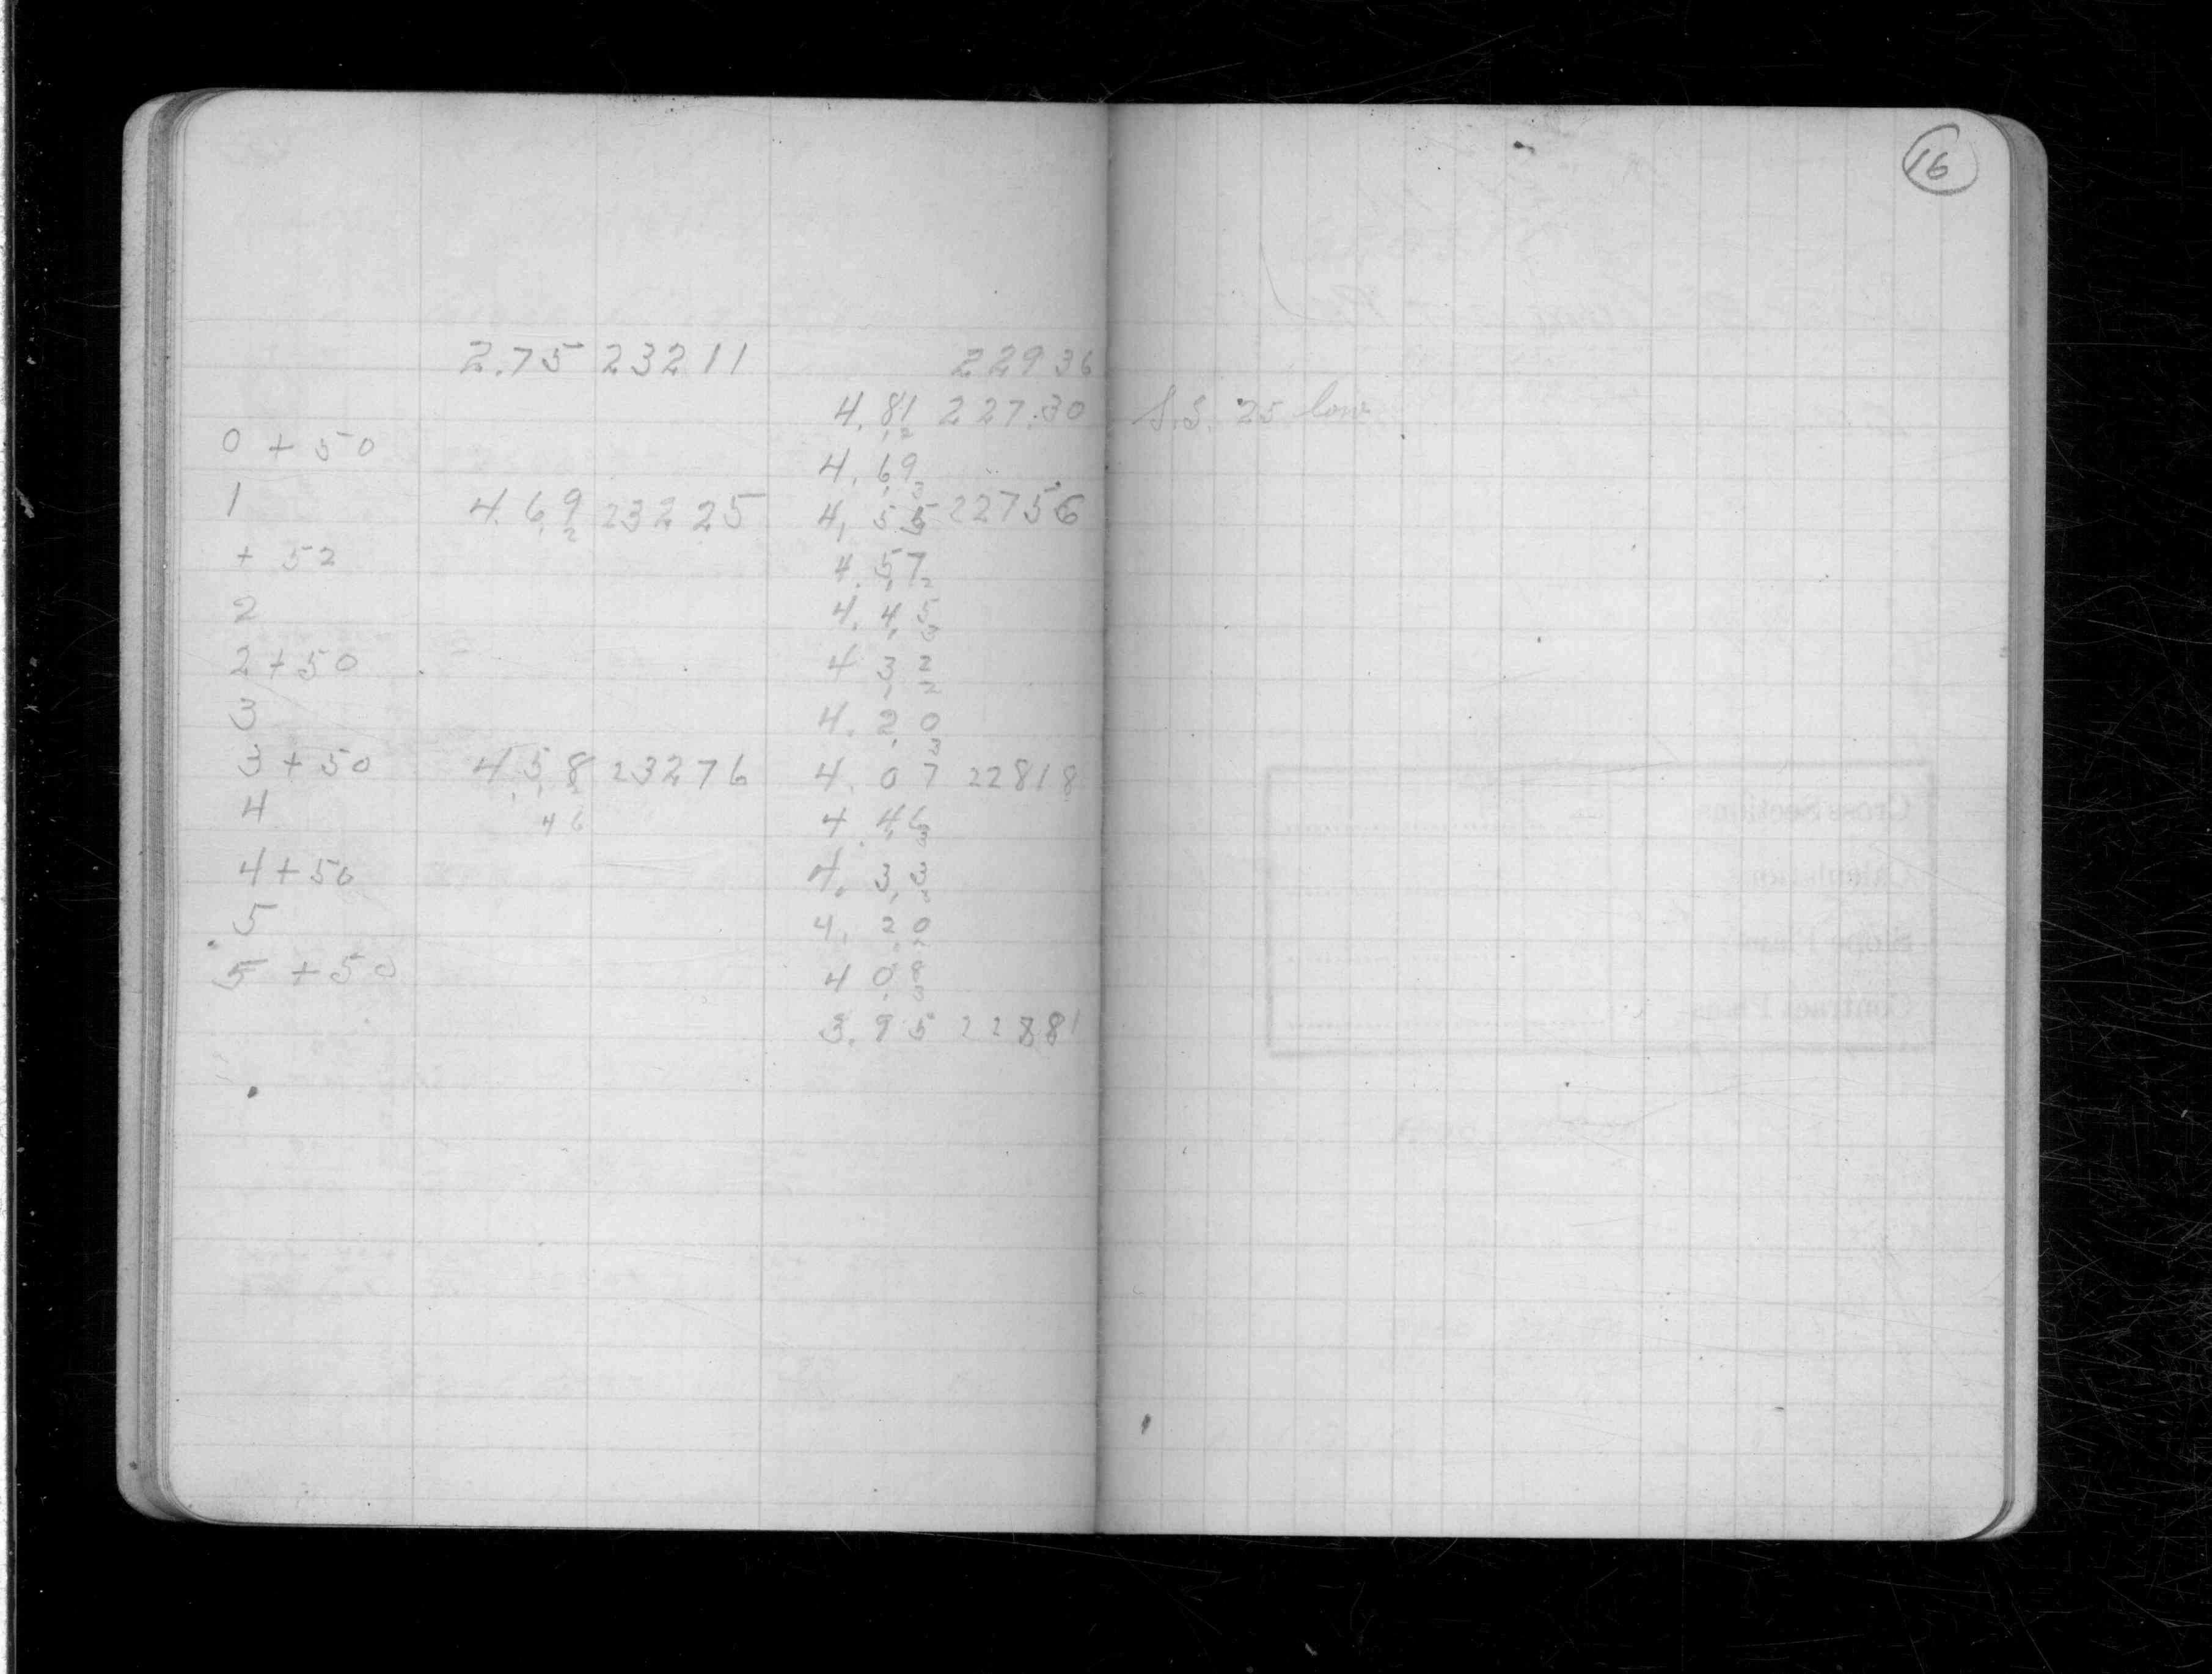 16
2.75 23211 22936
4.81 227.30 S.S. 25 low
.12
0 + 50
4.69
.13
1 4.69 23225 4.55 22756
.12
+ 52 4.57
.12
2 4.45
.13
2 + 50 4 32
.12
3 4.20
.13
3 + 50 4 58 23276 4.07 22818
.12
4 46 4.46
.13
4 + 50 4.33
5 4. 20
5 + 50 4 08
.13
3.95 22881